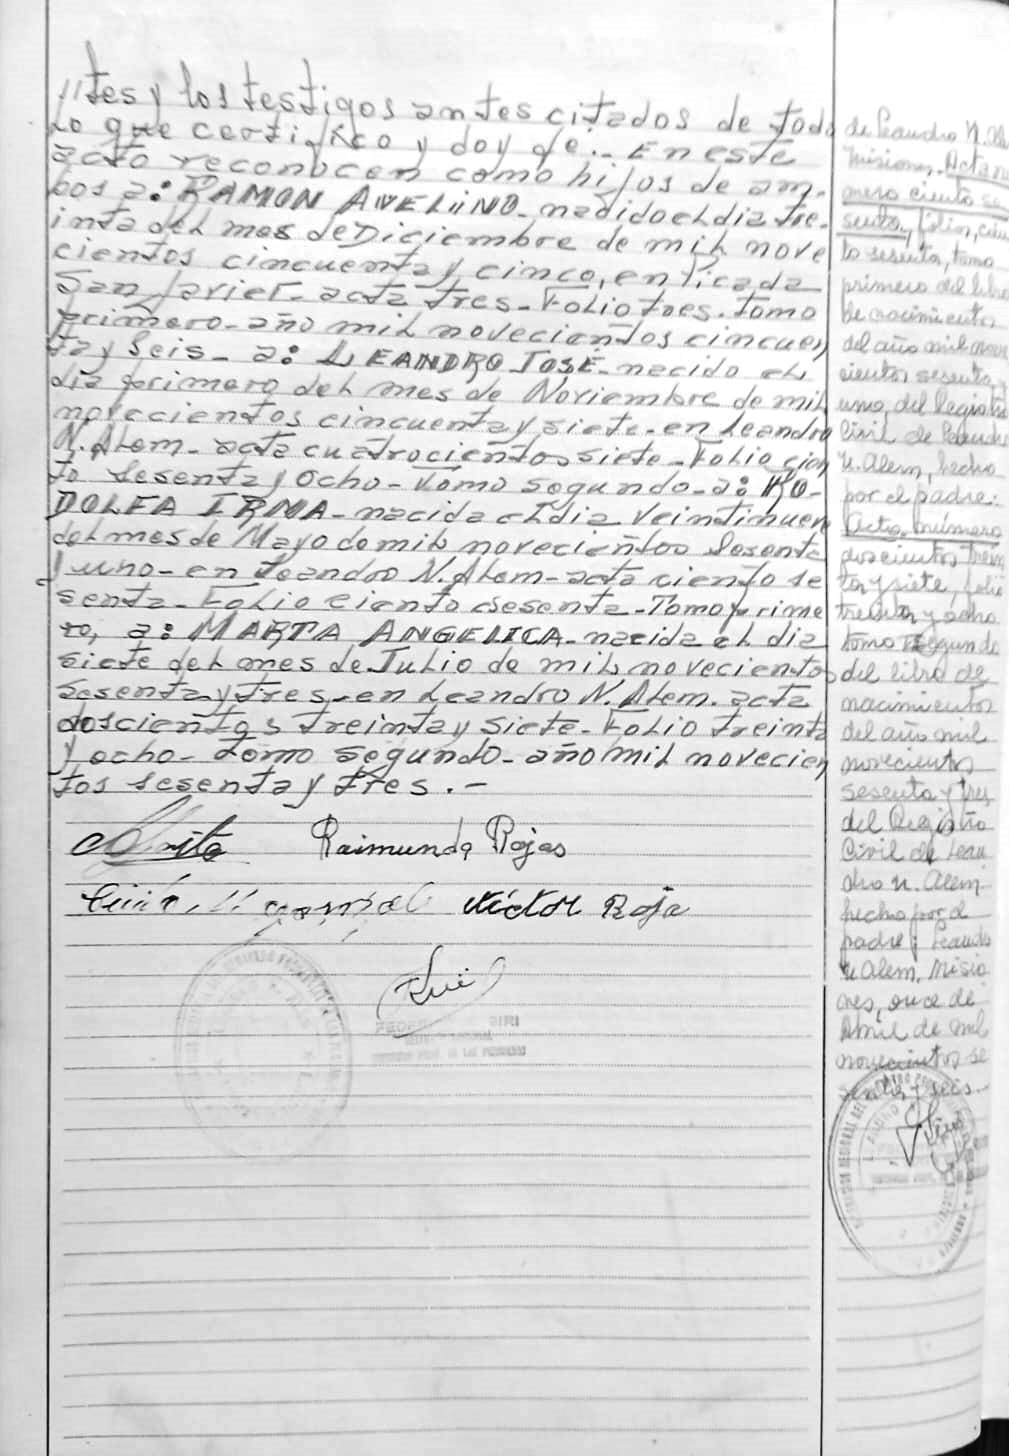 //tes y los testigos antes citados de todo
lo que certifico y doy fe.- En este
acto reconocen como hijos de am-
bos a: RAMON AVELiiNO- nacido el dia tre-
inta del mes de Diciembre de mil nove
cientos cincuenta y cinco, en Picada
San Javier- acta tres- Folio tres. Tomo
primero- año mil novecientos cincuen
ta y Seis- a: LEANDRO JOSÉ- nacido el
dia primero del mes de Noviembre de mil
novecientos cincuenta y siete- en Leandro
N. Alem- acta cuatrocientos siete- Folio cien
to Sesenta y Ocho- Tomo segundo- a: RO-
DOLFA IRMA- nacida el dia Veintinueve
del mes de Mayo de mil novecientos Sesenta
y uno- en Leandro N. Alem- acta ciento se
senta- Folio Ciento Sesenta- Tomo prime
ro, a: MARTA ANGELICA- nacida el dia
siete del mes de Julio de mil novecientos
Sesenta y tres- en Leandro N. Alem. acta
doscientos treinta y siete- Folio treinta
y ocho- Tomo segundo- año mil novecien
tos sesenta y tres.-
Raimundo Rojas
Víctor Roja
de Leandro N. Ale
Misiones. Acta nú
mero ciento se
senta, folio, cien
to sesenta, tomo
primero del libro
de nacimientos
del año mil nove
cientos sesenta y
uno, del Registro
Civil de Leandro
N. Alem, hecho
por el padre:
Acta número
doscientos trein
ta y siete, folio
treinta y ocho
tomo segundo
del libro de
nacimientos
del año mil
novecientos
sesenta y tres
del Registro
Civil de Lean
dro N. Alem
hecho por el
padre; Leandro
N Alem, Misio
nes, once de
Abril de mil
novecientos se
senta y seis.-